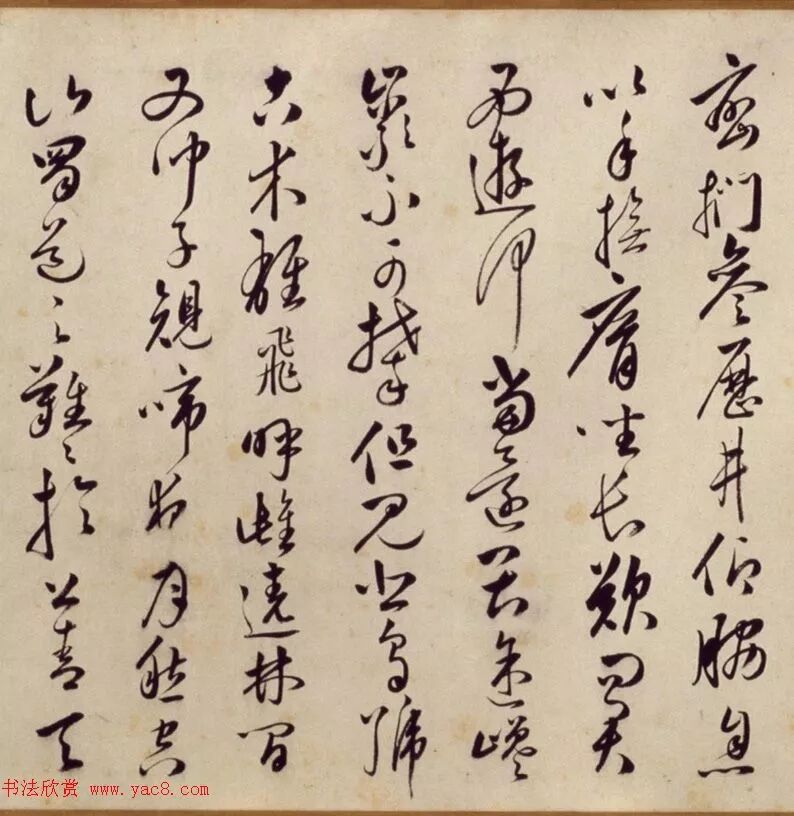 巒捫參歷井仰脇息
以手撫膺坐長歎問君
西遊何當還畏途巉
巖不可攀但見悲鳥號
古木雄飛呼雌遶林間
又聞子規啼夜月愁空
山蜀道之難〻於上青天
书法欣赏 www.yac8.com